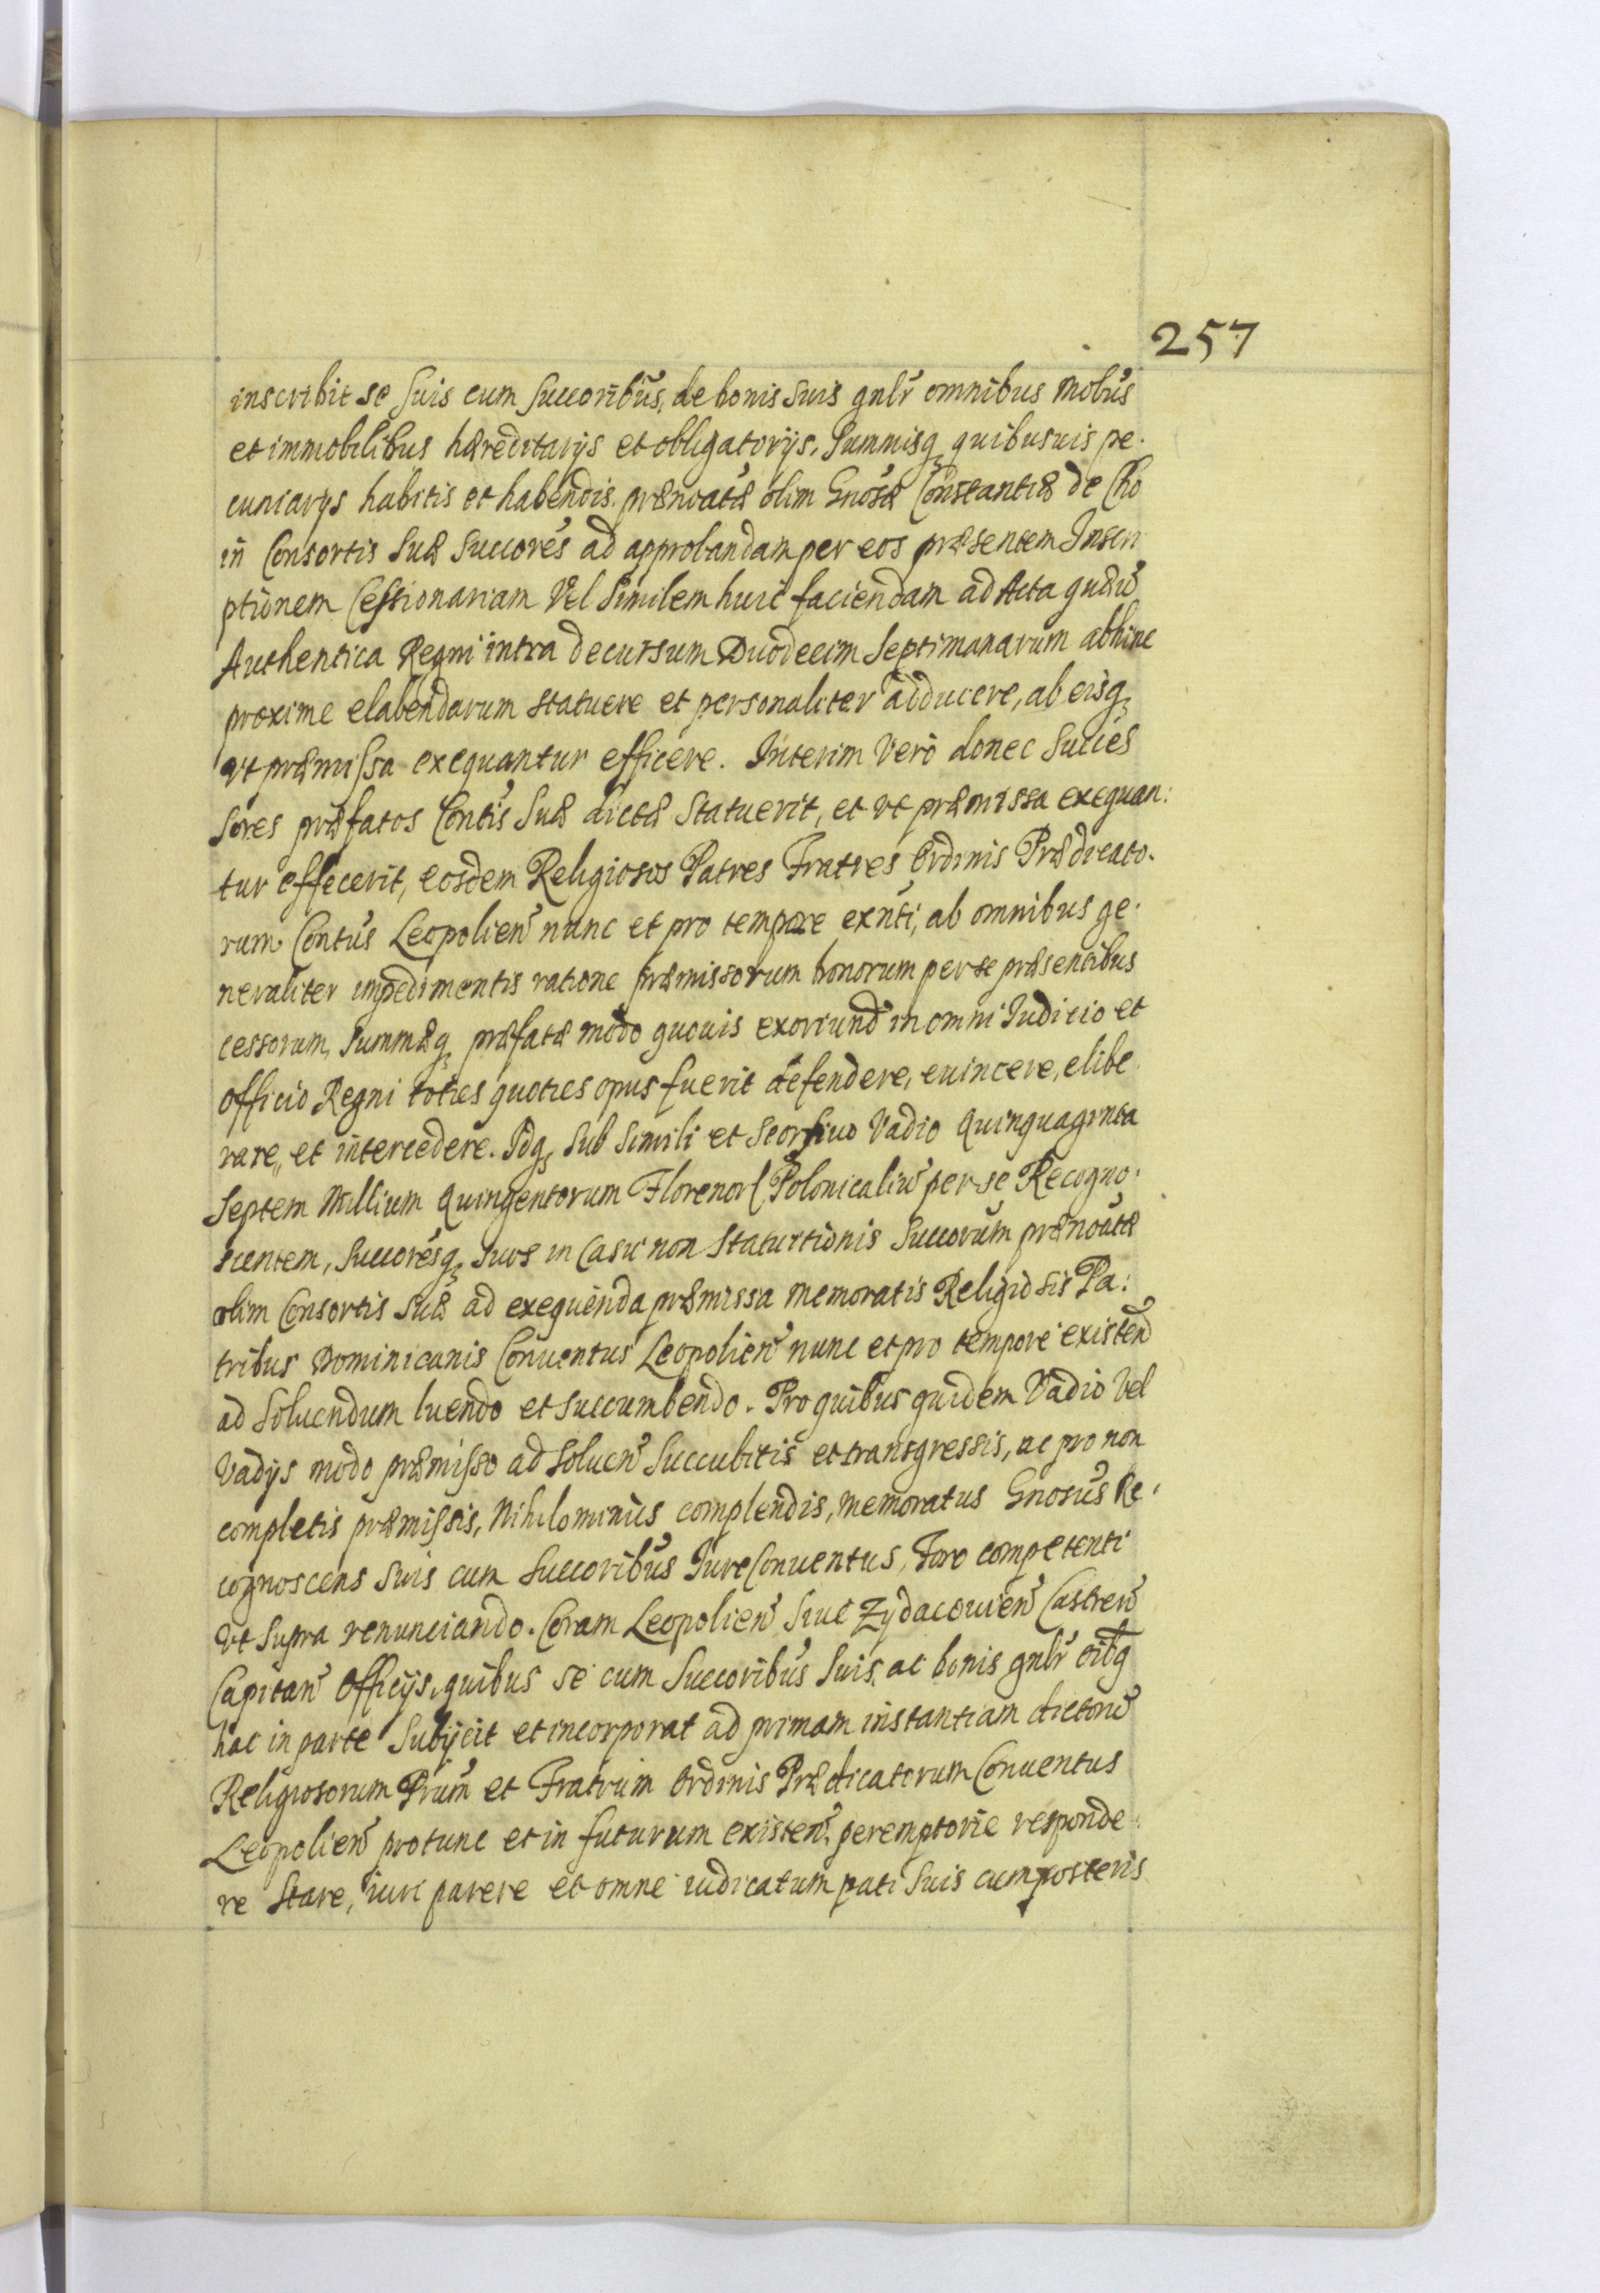 257
inscribit se suis cum succoribus, de bonis suis gnlr omnibus mobus
et immobilibus hæreditarys et obligatorijs, summisq quibusuis pe-
cuniarys habitis et habendis. prænoatæ olim Gnosæ Constantiæ de Cho
in Consortis suæ succores ad approbandam per eos præsentem Inscri
ptionem Cessionariam Vel similem huic faciendam ad Acta
Authentica Regni intra decursum Duodecim septimanarum abhinc
proxime elabendarum statuere et personaliter adducere, ab eisq
vt præmissa exequantur efficere. Interim Verò donec succes
sores præfatos Contis suæ dictæ statuerit, et vt præmissa exequan:
tur effecerit, eosdem Religiosos Patres Fratres Ordinis Prædicato-
rum Contus Leopolien nunc et pro tempore exnti, ab omnibus ge-
neraliter impedimentis ratione præmissorum bonorum per se præsentibus
cessorum, summæq præfatæ modo quouis exoriund in omni Iudicio et
officio Regni toties quoties opus fuerit defendere, euincere, elibe
rare, et intercedere. Idq sub simili et seorsiuo Vadio Quinquaginta
septem Millium Quingentorum Florenor Polonicaliu per se Recogno-
scentem, succoresq suos in Casu non statuitionis succorum prænoatæ
olim Consortis suæ ad exequenda præmissa memoratis Religiosis Pa:
tribus Dominicanis Conuentus Leopolien nunc et pro tempore existend
ad soluendum luendo et succumbendo. Pro quibus quidem Vadio Vel
Vadys modo præmisso ad soluen succubitis et transgressis, ac pro non
completis præmissis, Nihilominus complendis, memoratus Gnosus Re-
cognoscens suis cum succoribus Iure Conuentus, Foro competenti
vt supra renunciando. Coram Leopolien siue Zydacouien Castren
Capitan Officijs, quibus se cum succoribus suis, ac bonis gnlr oibq
hac in parte subijcit et incorporat ad primam instantiam dictoru
Religiosorum Prum et Fratrum Ordinis Prædicatorum Conuentus
Leopolien protunc et in futurum existen, peremptorie responde-
re stare, iuri parere et omne iudicatum pati suis cum posteris